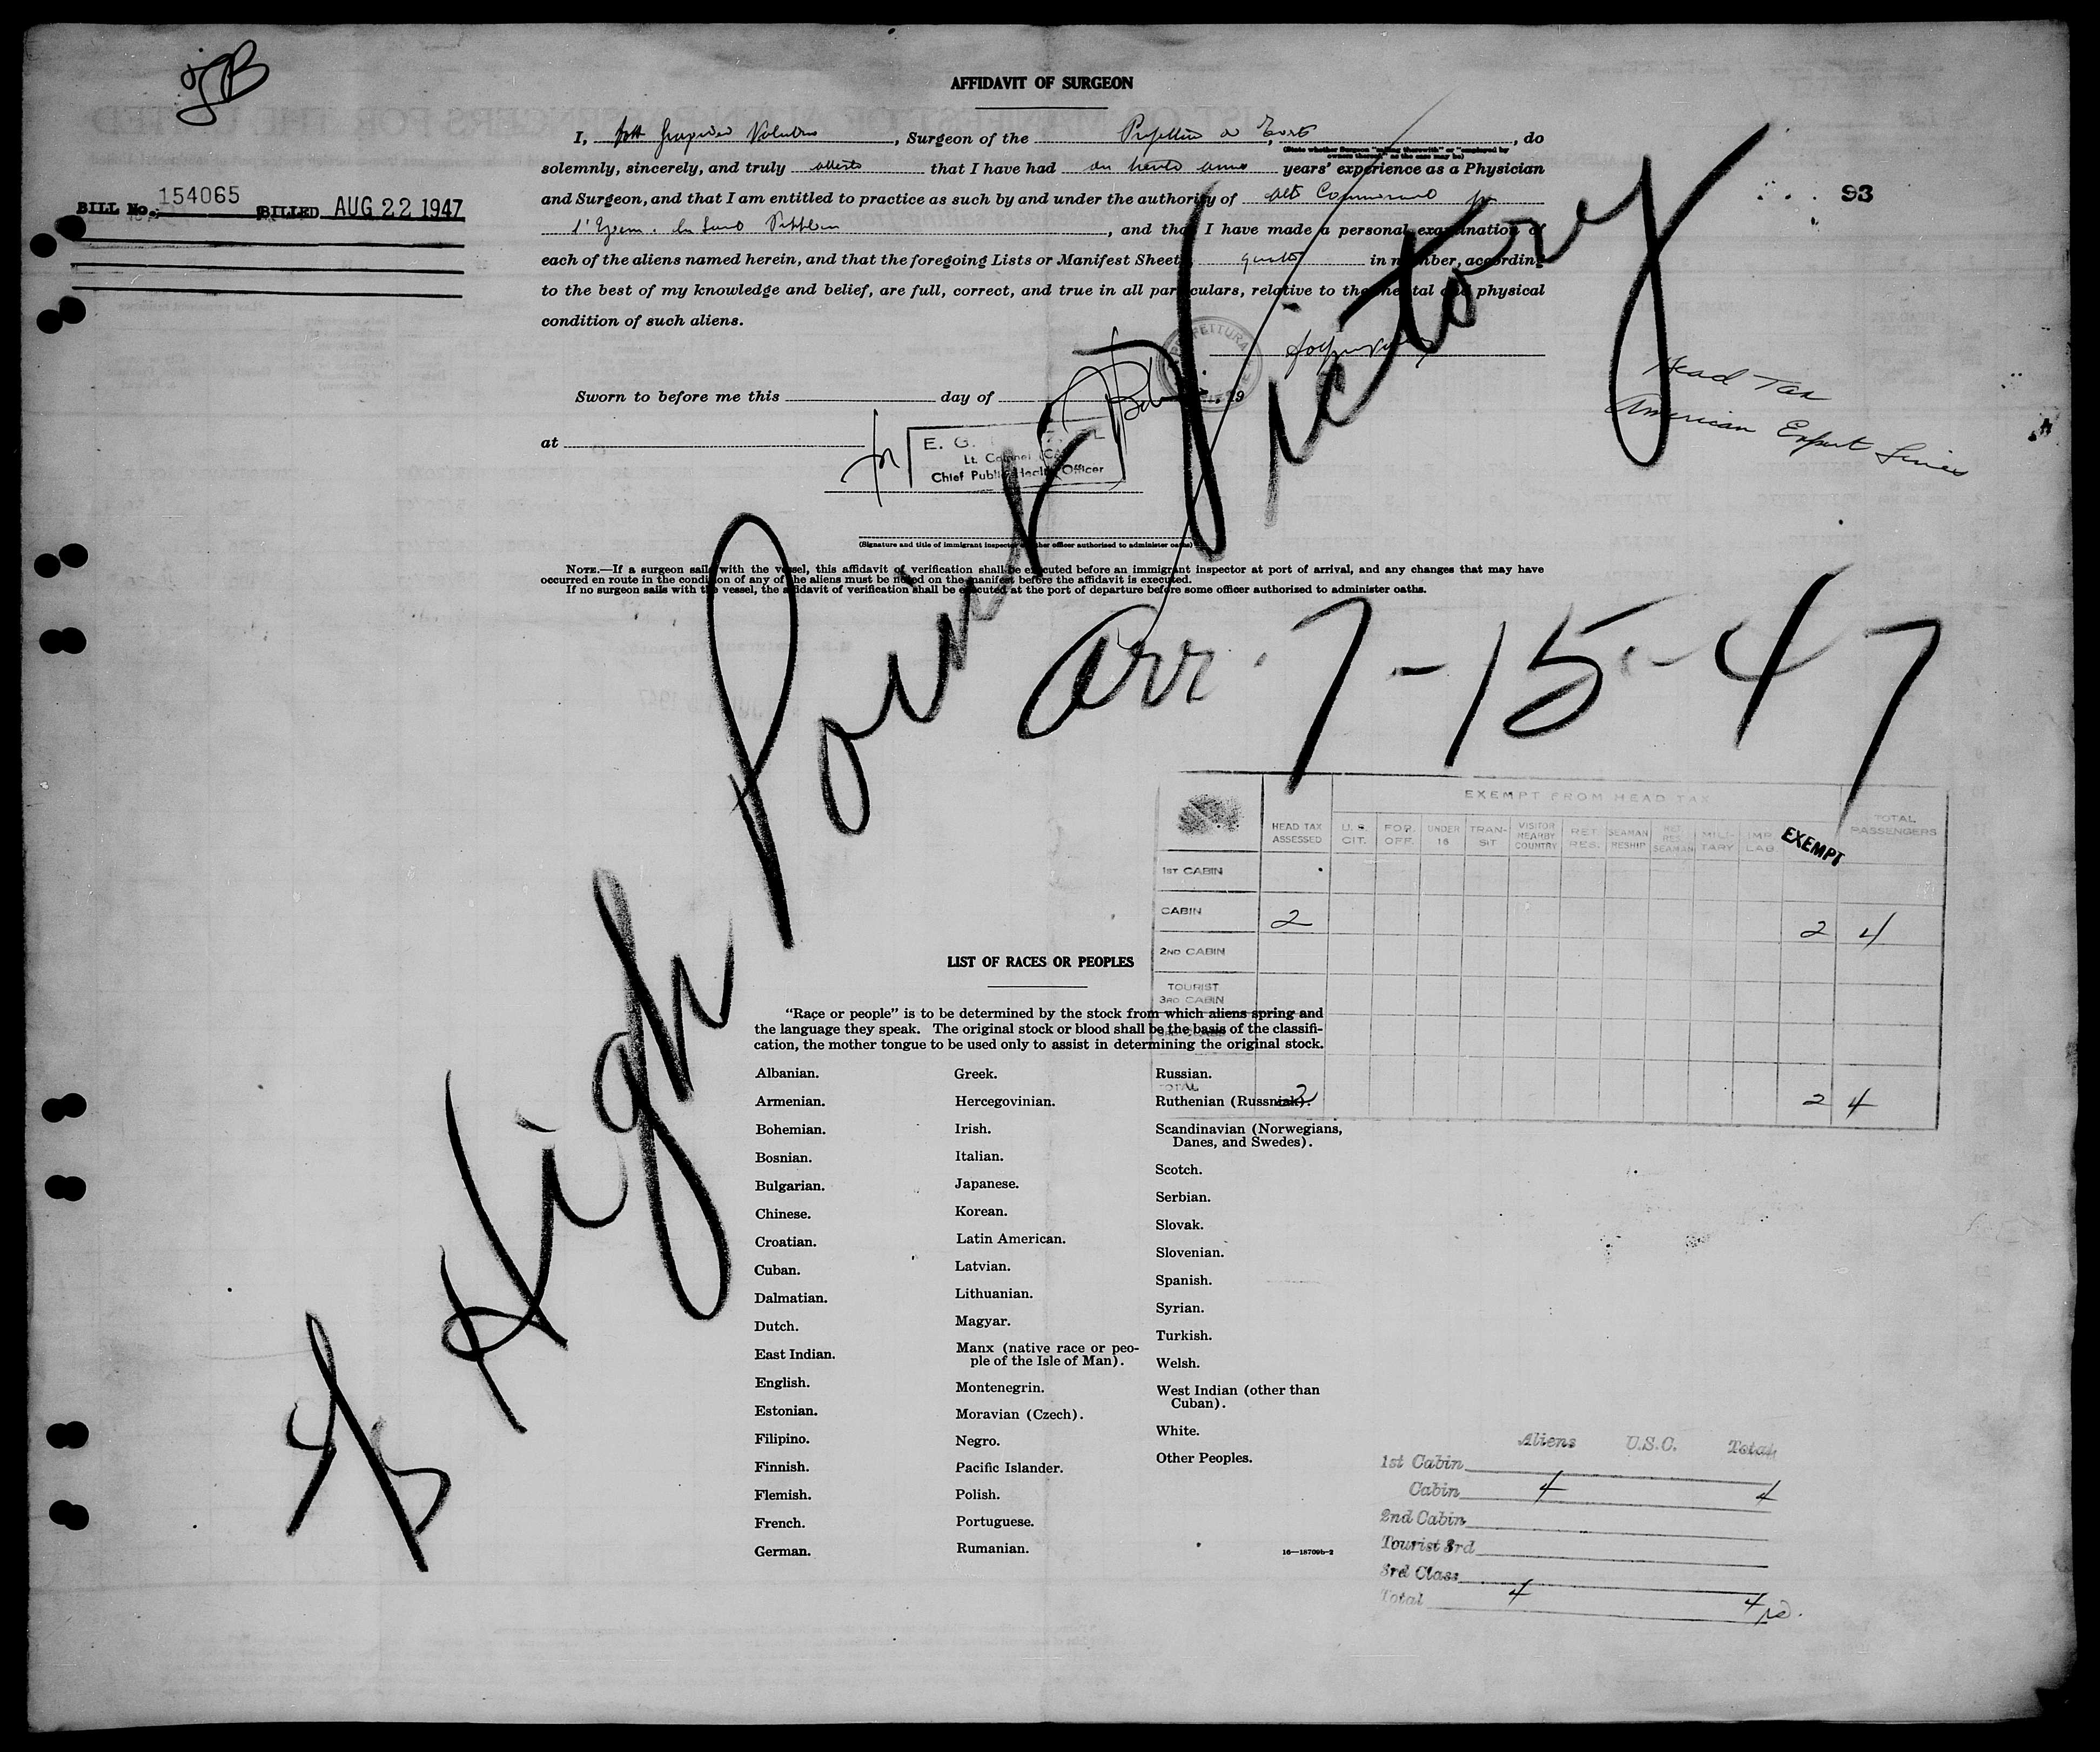 JB
AFFIDAVIT OF SURGEON
I, , Surgeon of the , do
(State whether Surgeon "sailing therewith" or "employed by
owners thereof," as the case may be)
solemnly, sincerely, and truly that I have had years' experience as a Physician
and Surgeon, and that I am entitled to practice as such by and under the authority of
, and that I have made a personal examination of
each of the aliens named herein, and that the foregoing Lists or Manifest Sheets, in number, according
to the best of my knowledge and belief, are full, correct, and true in all particulars, relative to the mental and physical
condition of such aliens.
BILL No. 154065 BILLED AUG 22 1947
93
PREFEITURA
Sworn to before me this day of , 19
at
for E. G.
Lt. Colonel
Chief Public Health Officer
Head Tax
American Export Lines
(Signature and title of immigrant inspector or other officer authorized to administer oaths)
NOTE.—If a surgeon sails with the vessel, this affidavit of verification shall be executed before an immigrant inspector at port of arrival, and any changes that may have
occurred en route in the condition of any of the aliens must be noted on the manifest before the affidavit is executed.
If no surgeon sails with the vessel, the affidavit of verification shall be executed at the port of departure before some officer authorized to administer oaths.
High Point Victory
Arr. 7-15-47
EXEMPT FROM HEAD TAX
HEAD TAX ASSESSED U.S. CIT. FOR. OFF. UNDER 16 TRAN-SIT VISITOR NEARBY COUNTRY RET. RES. SEAMAN RESHIP RET. RES. SEAMAN MILI-TARY IMP. LAB. EXEMPT TOTAL PASSENGERS
1ST CABIN
CABIN 2 2 4
2ND CABIN
TOURIST
3RD CABIN
TOTAL 2 2 4
LIST OF RACES OR PEOPLES
"Race or people" is to be determined by the stock from which aliens spring and
the language they speak. The original stock or blood shall be the basis of the classifi-
cation, the mother tongue to be used only to assist in determining the original stock.
Albanian.
Armenian.
Bohemian.
Bosnian.
Bulgarian.
Chinese.
Croatian.
Cuban.
Dalmatian.
Dutch.
East Indian.
English.
Estonian.
Filipino.
Finnish.
Flemish.
French.
German.
Greek.
Hercegovinian.
Irish.
Italian.
Japanese.
Korean.
Latin American.
Latvian.
Lithuanian.
Magyar.
Manx (native race or peo-
ple of the Isle of Man).
Montenegrin.
Moravian (Czech).
Negro.
Pacific Islander.
Polish.
Portuguese.
Rumanian.
Russian.
Ruthenian (Russniak).
Scandinavian (Norwegians,
Danes, and Swedes).
Scotch.
Serbian.
Slovak.
Slovenian.
Spanish.
Syrian.
Turkish.
Welsh.
West Indian (other than
Cuban).
White.
Other Peoples.
16—18709b-2
Aliens U.S.C. Total
1st Cabin
Cabin 4 4
2nd Cabin
Tourist 3rd
3rd Class
Total 4 4